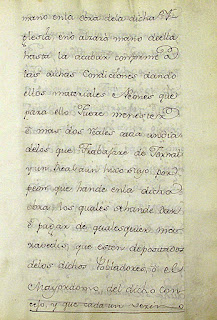 mano enla obra dela dicha Y-
glesia, enõ alzarã mano della
hasta la acabar conforme a
las dichas Condiciones dando
ellos materiales e Peones que
para ello fuere menester
E mas dos reales cada undia
delos que Trabajare de Jornal
y un Real
peon que hande enla dicha
obra los quales sehande dar
E pagar de qualesquier ma-
ravedis, que esten depositados
delos dichos Pobladores, o el
Mayordomo, del dicho con-
cejo, y que cada un vezino